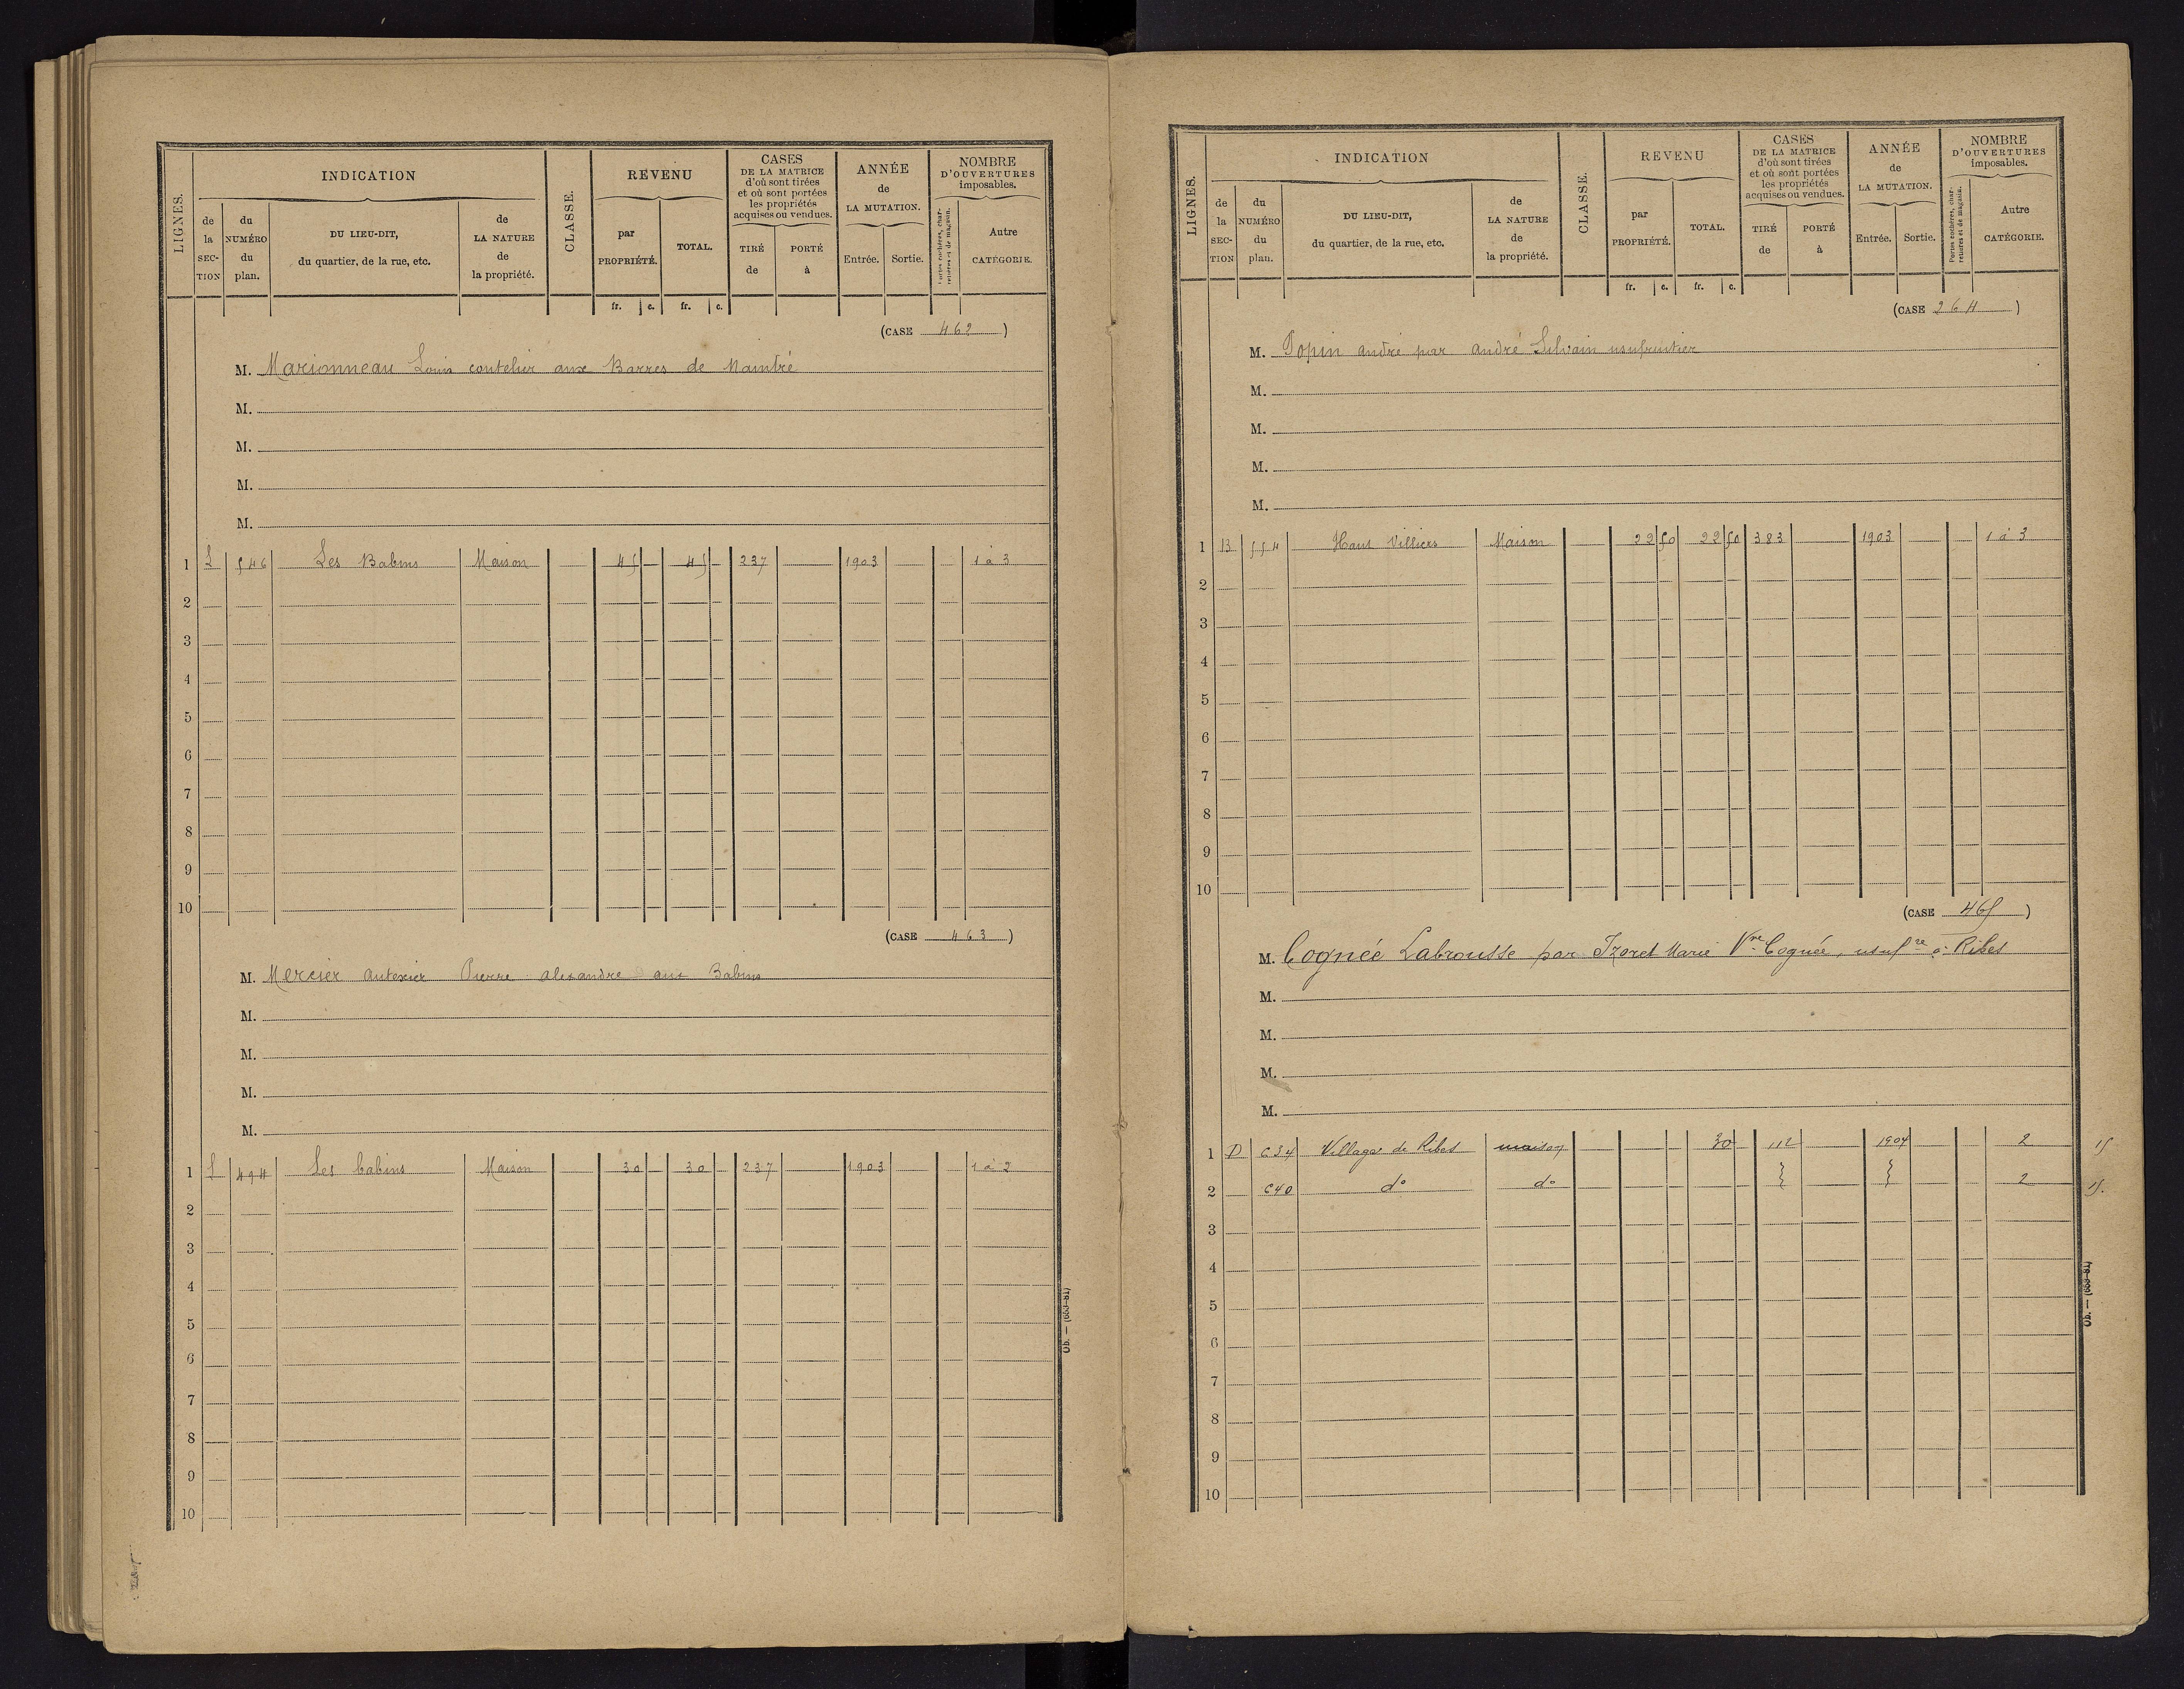 LIGNES. INDICATION CLASSE. REVENU CASES DE LA MATRICE d'où sont tirées et où sont portées les propriétés acquises ou vendues. ANNÉE de LA MUTATION. NOMBRE D'OUVERTURES imposables.
de la SECTION du NUMÉRO du plan. DU LIEU-DIT, du quartier, de la rue, etc. de LA NATURE de la propriété. par PROPRIÉTÉ. TOTAL. TIRÉ de PORTÉ à Entrée. Sortie. Portes cochères, charretières et de magasin. Autre CATÉGORIE.
fr. c. fr. c.
(CASE 462)
M. Marionneau Louis coutelier aux Barres de Naintré
M.
M.
M.
M.
1 L 546 Les Babins Maison 45 — 45 — 237 1903 1 à 3
2
3
4
5
6
7
8
9
10
(CASE 463)
M. Mercier autexier Pierre alexandre aux Babins
M.
M.
M.
M.
1 L 494 Les babins Maison 30 — 30 — 237 1903 1 à 2
2
3
4
5
6
7
8
9
10
Ob. — (663-81)
LIGNES. INDICATION CLASSE. REVENU CASES DE LA MATRICE d'où sont tirées et où sont portées les propriétés acquises ou vendues. ANNÉE de LA MUTATION. NOMBRE D'OUVERTURES imposables.
de la SECTION du NUMÉRO du plan. DU LIEU-DIT, du quartier, de la rue, etc. de LA NATURE de la propriété. par PROPRIÉTÉ. TOTAL. TIRÉ de PORTÉ à Entrée. Sortie. Portes cochères, charretières et de magasin. Autre CATÉGORIE.
fr. c. fr. c.
(CASE 264)
M. Popin andré par andré Silvain usufruitier
M.
M.
M.
M.
1 B 554 Haut Villiers Maison 22 50 22 50 383 1903 1 à 3
2
3
4
5
6
7
8
9
10
(CASE 465)
M. Cognée Labrousse par Izoret Marie Vve Cognée, usufre à Ribes
M.
M.
M.
M.
1 D 634 Village de Ribes maison 30 112 1904 2 15
2 640 do do 2 15.
3
4
5
6
7
8
9
10
Ob. — (663-81)